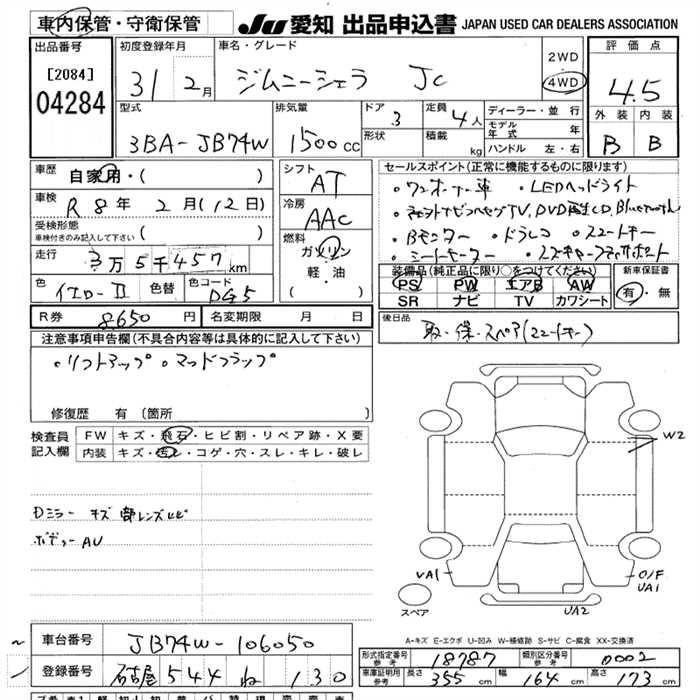 車内保管・守衛保管
JU 愛知 出品申込書 JAPAN USED CAR DEALERS ASSOCIATION
出品番号
[2084]
04284
初度登録年月
31 2月
車名・グレード
ジムニーシエラ JC
2WD
4WD
評価点
4.5
外装 内装
B B
型式
3BA-JB74W
排気量
1500cc
ドア
3
定員
4人
形状
積載 kg
ディーラー・並行
モデル年式 年
ハンドル 左・右
車歴
自家用・( )
車検
R8年 2月(12日)
受検形態
車検付きのみ記入して下さい ( )
走行
3万5千457km
色
イエローII
色替
色コード
DG5
シフト
AT
冷房
AAC
燃料
ガソリン
軽・油
( )
R券 8650円
名変期限 月 日
セールスポイント(正常に機能するものに限ります)
・ワンオーナー車 ・LEDヘッドライト
TV, DVD再生CD, Bluetooth
・Bモニター ・ドラレコ ・スマートキー
・シートヒーター
装備品(純正品に限り○をつけてください)
PS PW エアB AW
SR ナビ TV カワシート
新車保証書
有・無
後日品
取・保・スペア(スマートキー)
注意事項申告欄(不具合内容等は具体的に記入して下さい)
・リフトアップ ・マッドフラップ
修復歴 有 〔箇所
検査員記入欄
FW キズ・飛石・ヒビ割・リペア跡・X要
内装 キズ・汚レ・コゲ・穴・スレ・キレ・破レ
Dミラー キズ レンズヒビ
ボディー AU
W2
UA1
O/F
UA1
UA2
スペア
A-キズ E-エクボ U-凹み W-補修跡 S-サビ C-腐食 XX-交換済
車台番号 JB74W-106050
登録番号 名古屋 544 ね 130
形式指定番号 参考 18787
類別区分番号 参考 0002
車庫証明用 参考 長さ 355cm 幅 164cm 高さ 173cm